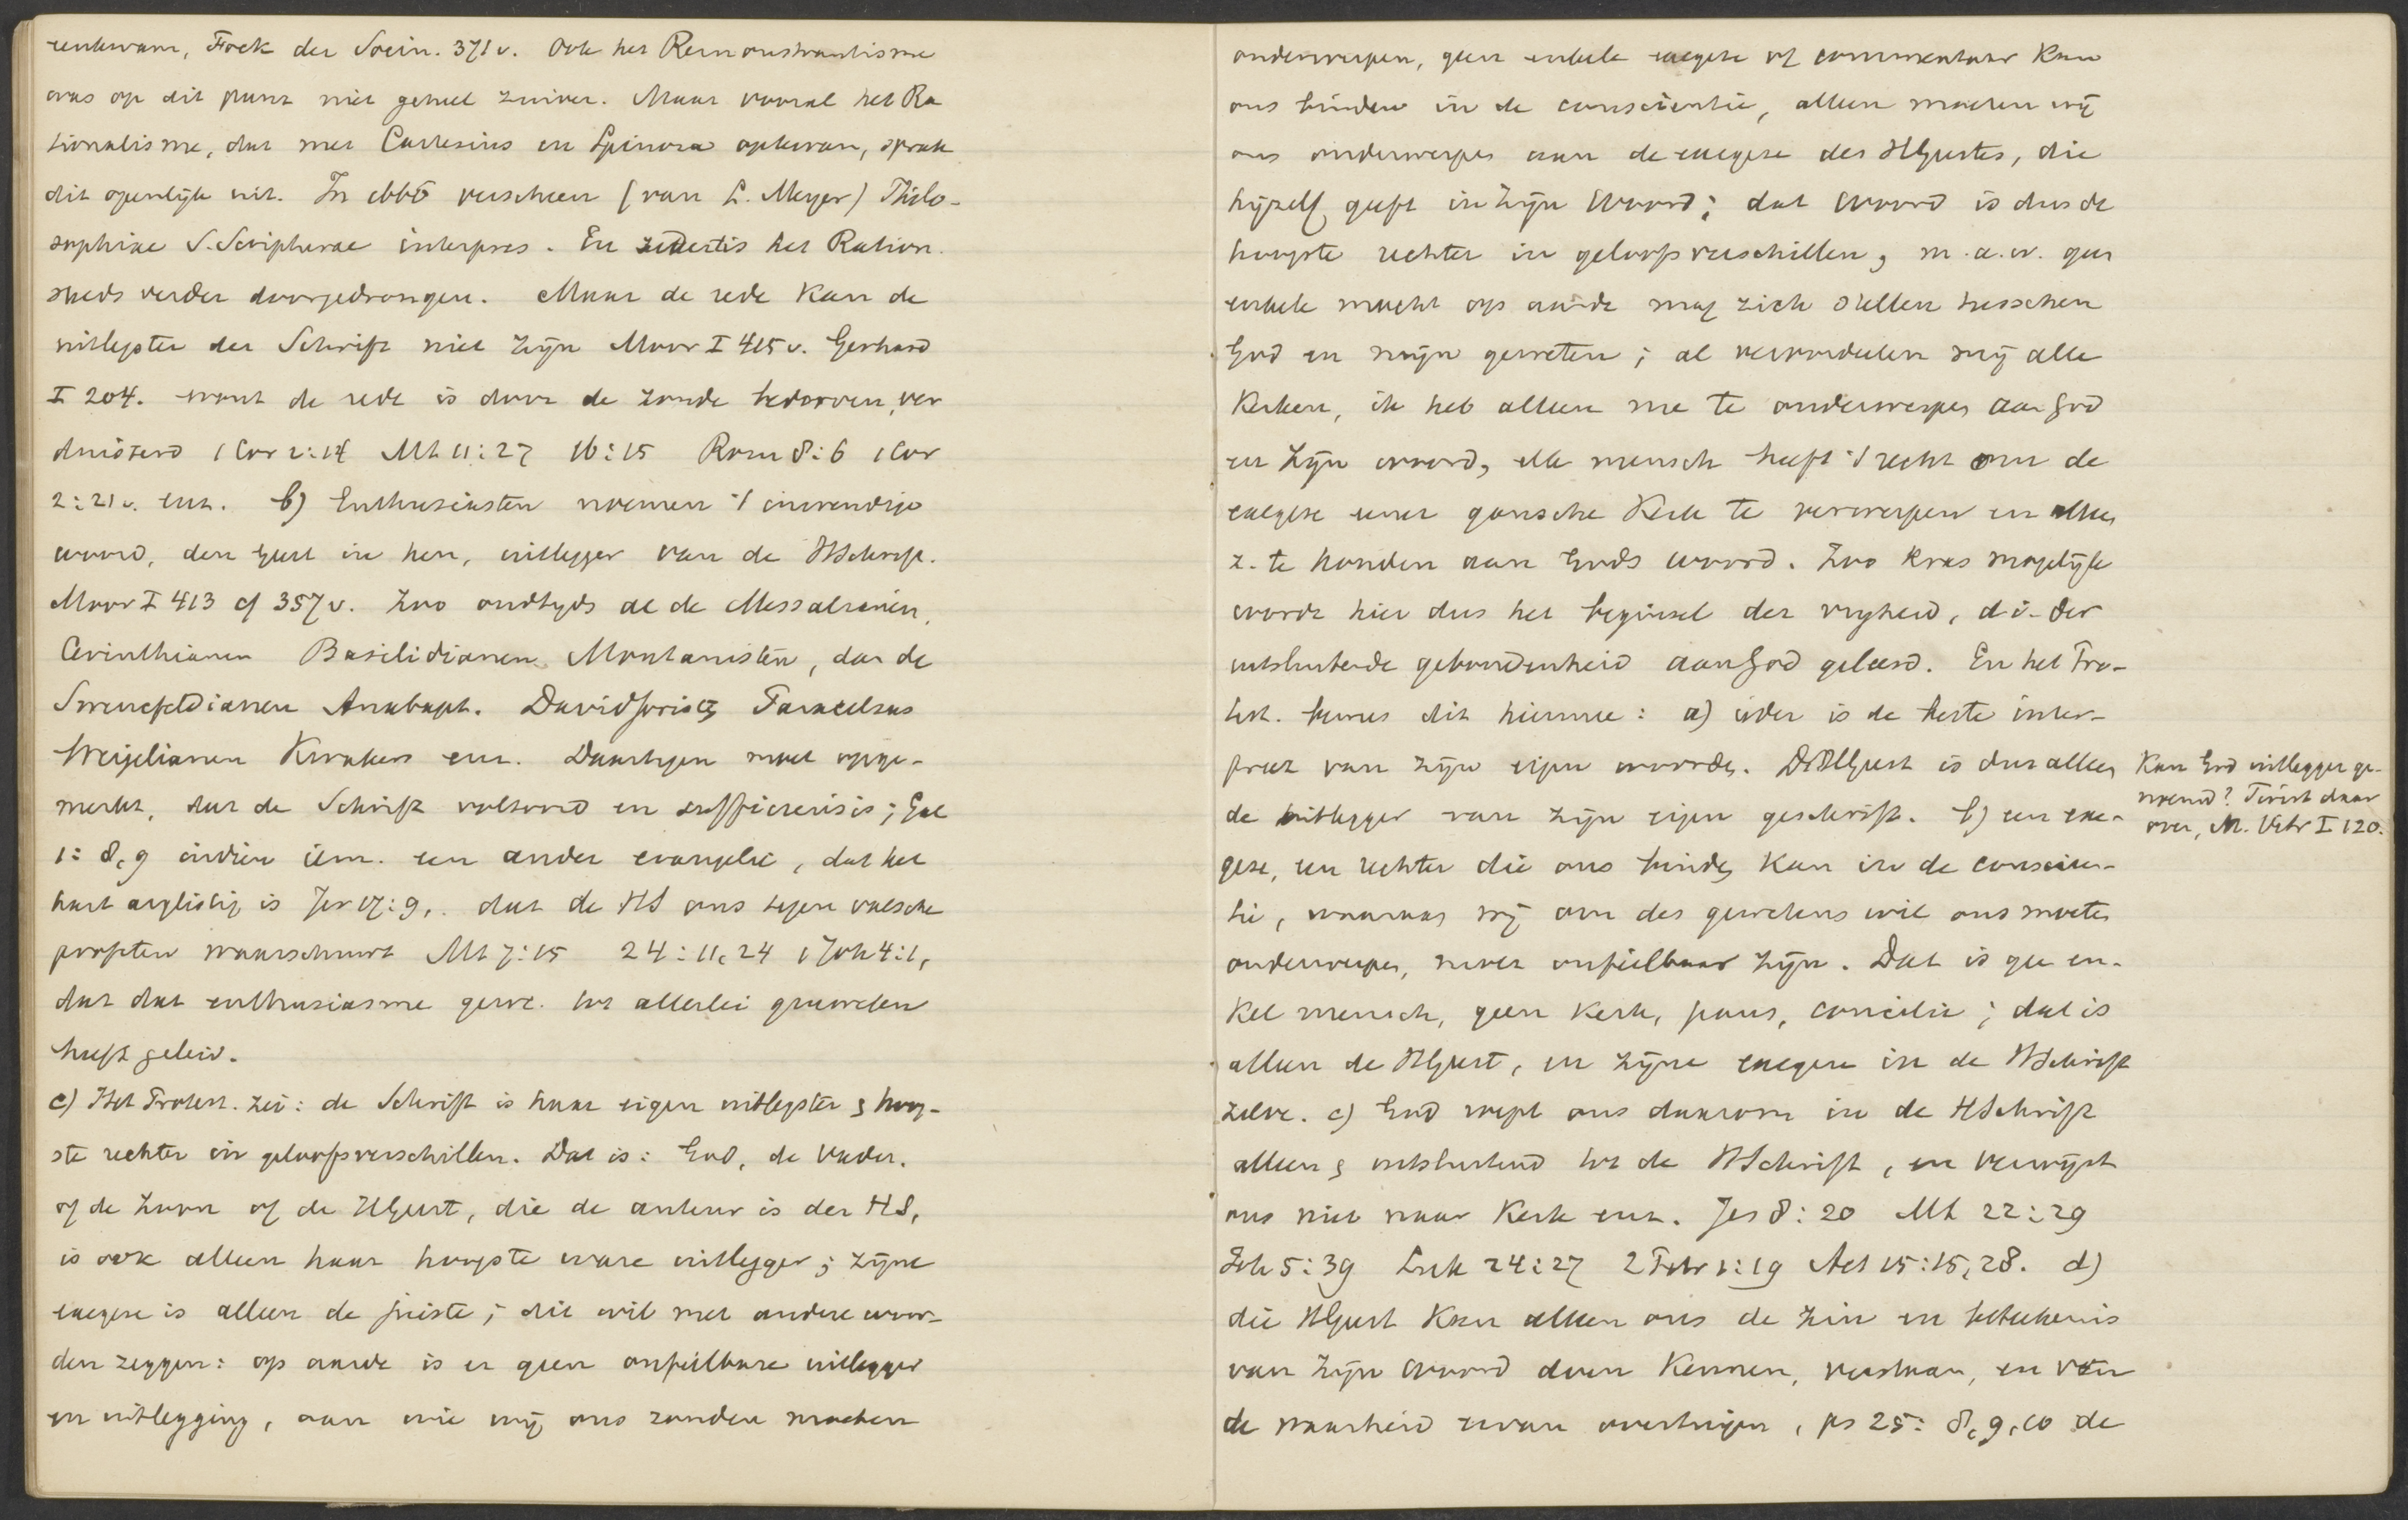 eenkwam, Fock der Socin. 371 v. Ook het Remonstrantisme
was op dit punt niet geheel zuiver. Maar vooral het Ra
tionalisme, dat met Cartesius en Spinoza opkwam, sprak
dit openlijk uit. In 1666 verscheen (van L. Meyer) Philo-
sophiae S. Scripturae interpres. En sedert is het Ration.
steeds verder doorgedrongen. Maar de rede kan de
uitlegster der Schrift niet zijn Moor I 415 v. Gerhard
I 204. want de rede is door de zonde bedorven, ver
duisterd 1 Cor 2:14 Mt 11:27 16:15 Rom 8:6 1 Cor
2:21 v. enz. b) Enthusiasten noemen 't inwendige
woord, den Geest in hen, uitlegger van de HSchrift.
Moor I 413 cf 357 v. Zoo oudtyds al de Messalianen,
Cerinthianen Basilidianen Montanisten, dan de
Swencfeldianen Anabapt. David Joris Paracelsus
Weigelianen Kwakers enz. Daartegen moet opge-
merkt, dat de Schrift voltooid en sufficiens is; Gal
1:8,9 indien iem. een ander evangelie, dat het
hart arglistig is Jer 17:9,. dat de HS ons tegen valsche
profeten waarschuwt Mt 7:15 24:11,24 1 Joh 4:1,
dat dat enthusiasme gew. tot allerlei gruwelen
heeft geleid.
c) Het Protest. zei: de Schrift is haar eigen uitlegster & hoog-
ste rechter in geloofsverschillen. Dat is: God, de Vader.
of de Zoon of de HGeest, die de auteur is der HS,
is ook alleen haar hoogste ware uitlegger; zijne
exegese is alleen de juiste; dit wil met andere woor-
den zeggen: op aarde is er geen onfeilbare uitlegger
en uitlegging, aan wie wij ons zouden moeten
onderwerpen, geen enkele exegese of commentaar kan
ons binden in de conscientie, alleen moeten wij
ons onderwerpen aan de exegese des HGeestes, die
hijzelf geeft in Zijn Woord; dat Woord is dus de
hoogste rechter in geloofsverschillen, m.a.w. geen
enkele macht op aarde mag zich stellen tusschen
God en mijn geweten; al veroordeelen mij alle
Kerken, ik heb alleen me te onderwerpen aan God
en Zijn woord, elk mensch heeft 't recht om de
exegese eener gansche Kerk te verwerpen en alleen
z. te houden aan Gods woord. Zoo kras mogelijk
wordt hier dus het beginsel der vrijheid, d.i. der
uitsluitende gebondenheid aan God geleerd. En het Pro-
test. bewees dit hiermee: a) ieder is de beste inter-
pretz van zijn eigen woorden. De HGeest is dus alleen
de uitlegger van zijn eigen geschrift. b) een exe-
gese, een rechter die ons binden kan in de conscien-
tie, waaraan wij om des gewetens wil ons moeten
onderwerpen, moet onfeilbaar zijn. Dat is gee en-
kel mensch, geen Kerk, paus, concilie; dat is
alleen de HGeest, en zijne exegese in de HSchrift
zelve. c) God roept ons daarom in de HSchrift
alleen & uitsluitend tot de HSchrift, en verwijst
ons niet naar Kerk enz. Jes 8:20 Mt 22:29
Joh 5:39 Luk 24:27 2 Petr 1:19 Act 15:15,28. d)
die HGeest kan alleen ons de zin en beteekenis
van Zijn woord doen kennen, verstaan, en van
de waarheid ervan overtuigen, ps 25:8,9,10 de
Kan God uitlegger ge-
noemd? Twist daar
over, M. Vitr I 120.